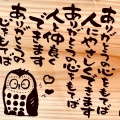 ありがとうの心をもてば
人にやさしくできます
ありがとうの心をもてば
人と仲良く
できます